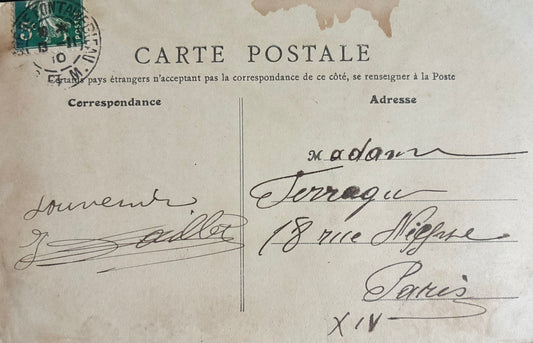 FONTAINEBLEAU
10
5
CARTE POSTALE
Certains pays étrangers n'acceptent pas la correspondance de ce côté, se renseigner à la Poste
Correspondance
souvenir
Adresse
Madame
Terraqu
18 rue
Paris
XIV